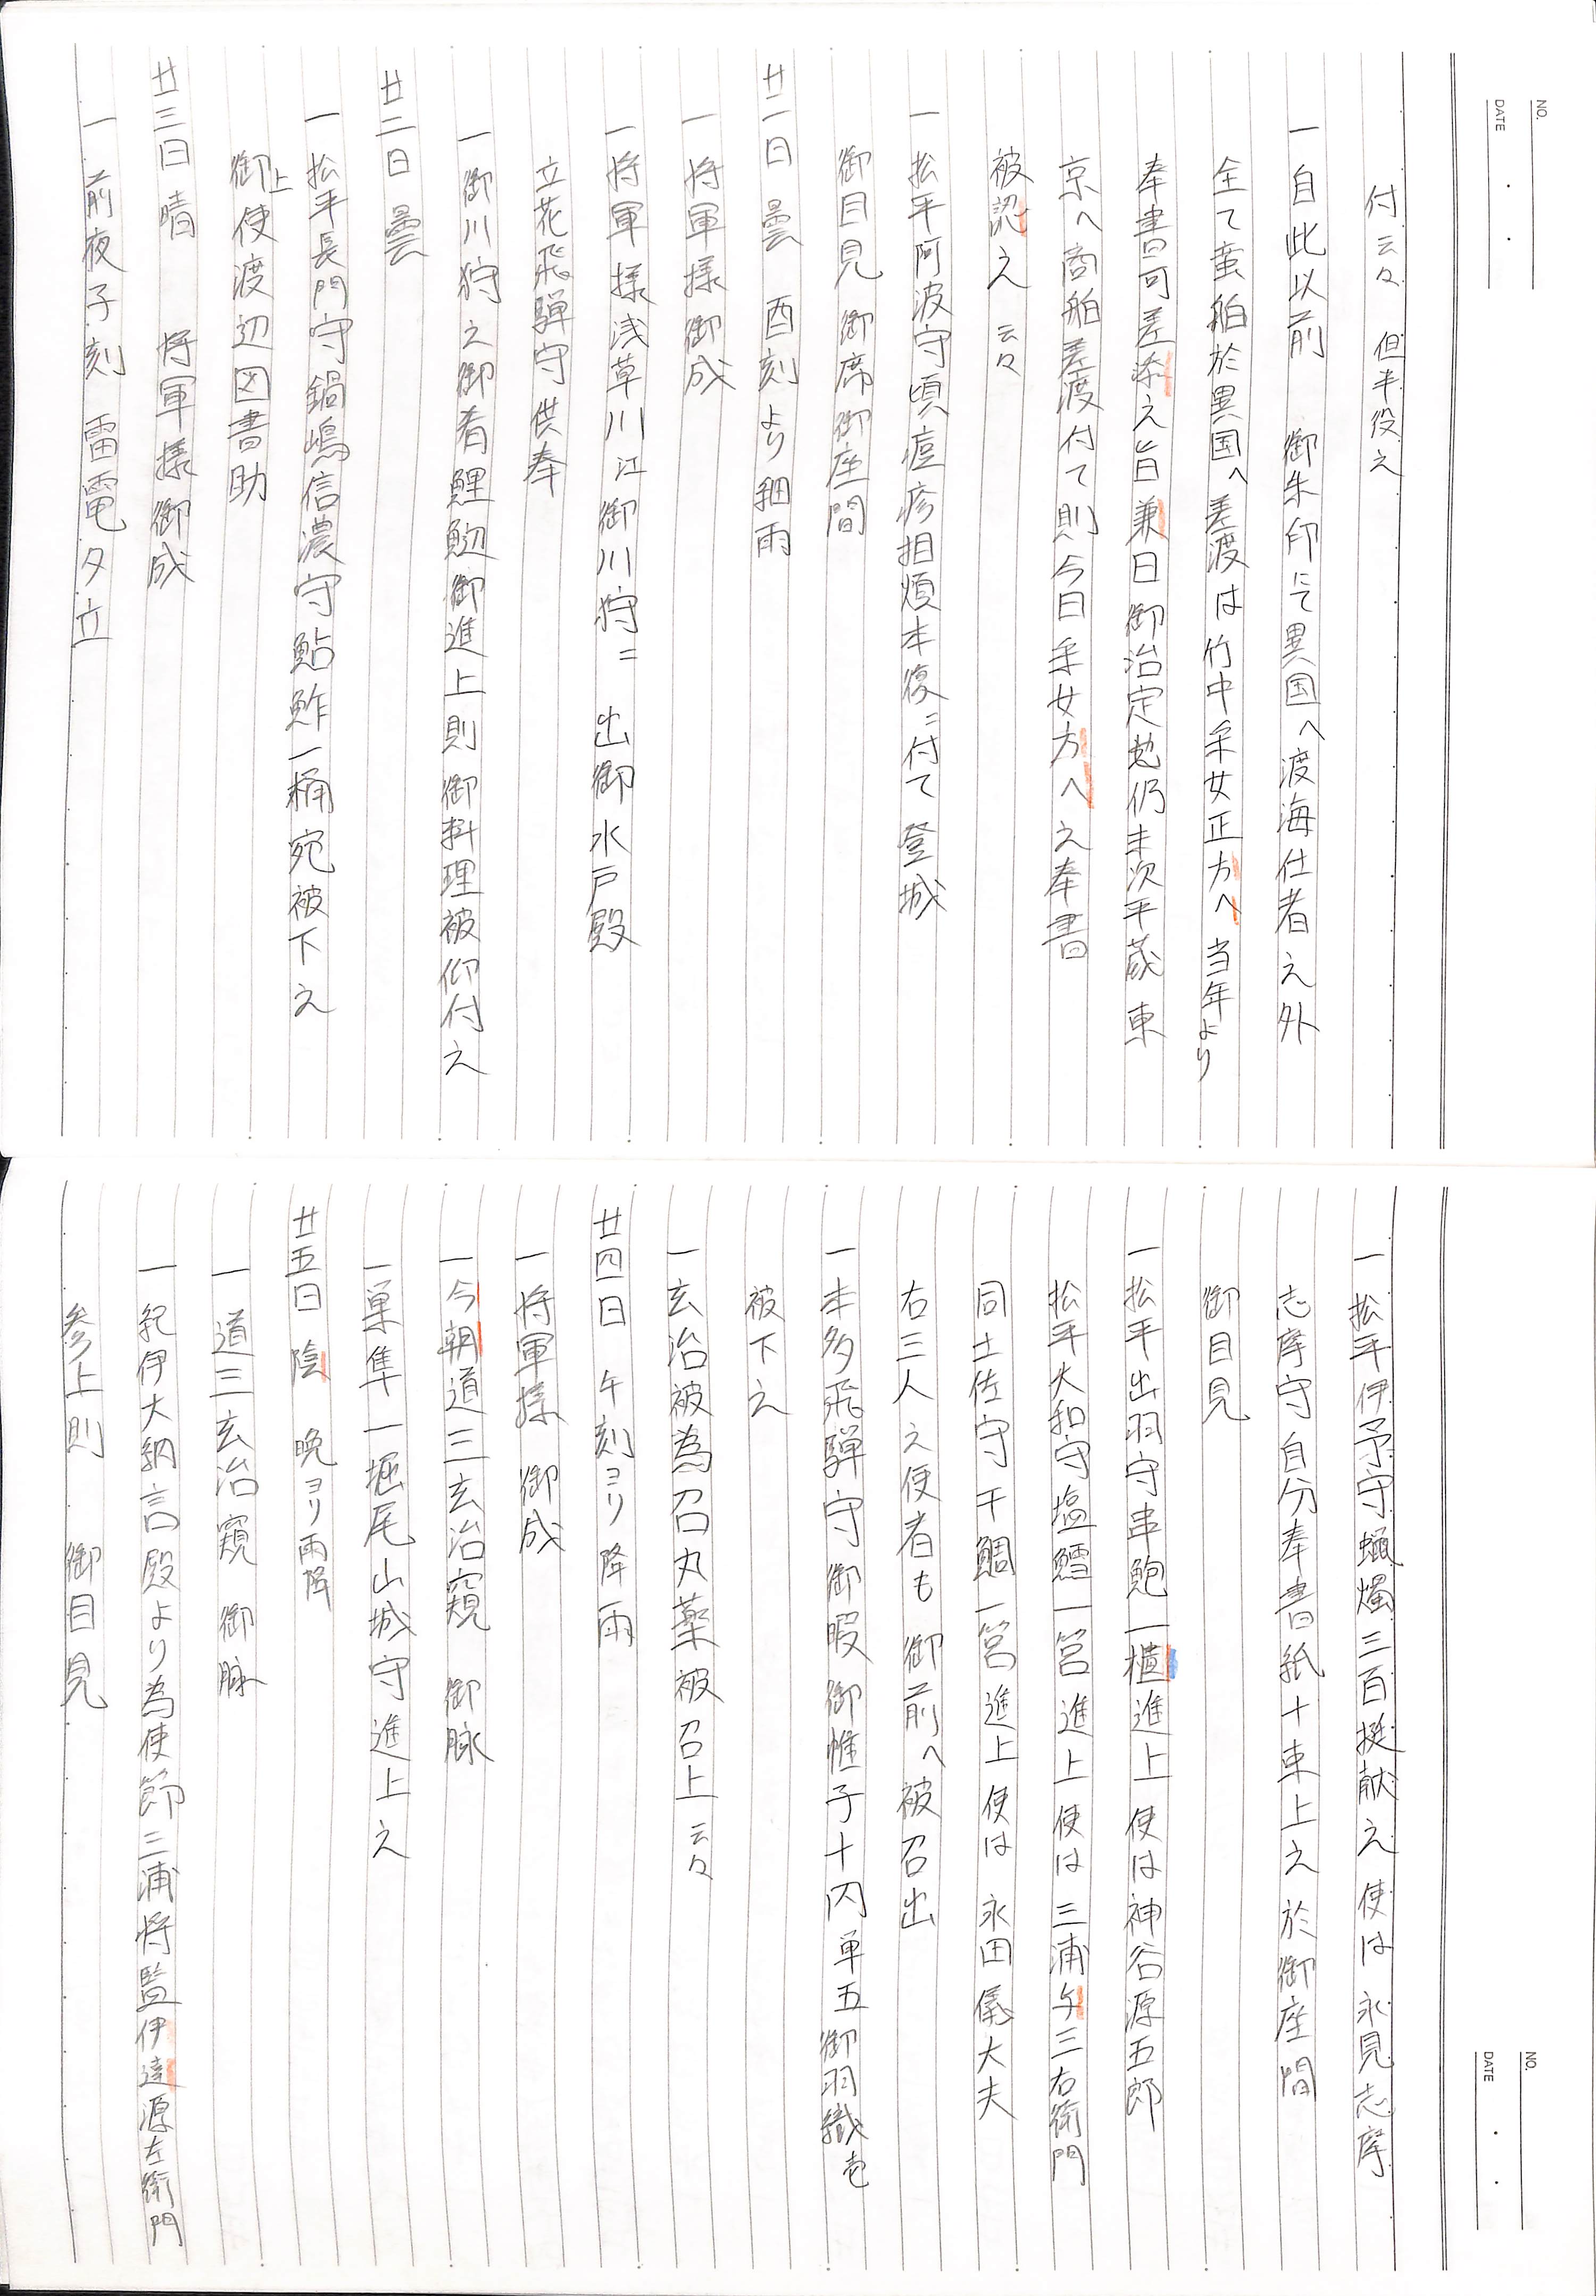 NO.
DATE
付云々 但半役之
一 自此以前 御朱印ニて異国へ渡海仕者之外
全て蛮舶於異国へ差渡は竹中采女正方へ当年より
奉書可差添之旨兼日御治定也仍末次平蔵東
京へ商舶差渡付て則今日采女方へ之奉書
被認之 云々
一 松平阿波守頃痘疹相煩本復ニ付て登城
御目見 御席御座間
廿一日 曇 酉刻より細雨
一 将軍様御成
一 将軍様浅草川江御川狩ニ 出御水戸殿
立花飛騨守供奉
一 御川狩之御肴鯉魦御進上則御料理被仰付之
廿二日 曇
一 松平長門守鍋嶋信濃守鮎鮓一桶宛被下之
御上使渡辺図書助
廿三日 晴 将軍様御成
一 前夜子刻 雷電夕立
NO.
DATE
一 松平伊予守蝋燭三百挺献之使は永見志摩
志摩守自分奉書紙十束上之於御座間
御目見
一 松平出羽守串鮑一櫃進上 使は神谷源五郎
松平大和守塩鱈一筥進上使は三浦与三右衛門
同土佐守干鯛一筥進上使は永田儀大夫
右三人之使者も御前へ被召出
一 本多飛騨守御暇御帷子十内単五御羽織壱
被下之
一 玄冶被為召丸薬被召上云々
廿四日 午刻ヨリ降雨
一 将軍様 御成
一 今朝道三玄冶窺 御脉
一 巣隼一堀尾山城守進上之
廿五日 陰 晩ヨリ雨降
一 道三玄冶窺 御脉
一 紀伊大納言殿より為使節三浦将監伊達源左衛門
参上則 御目見